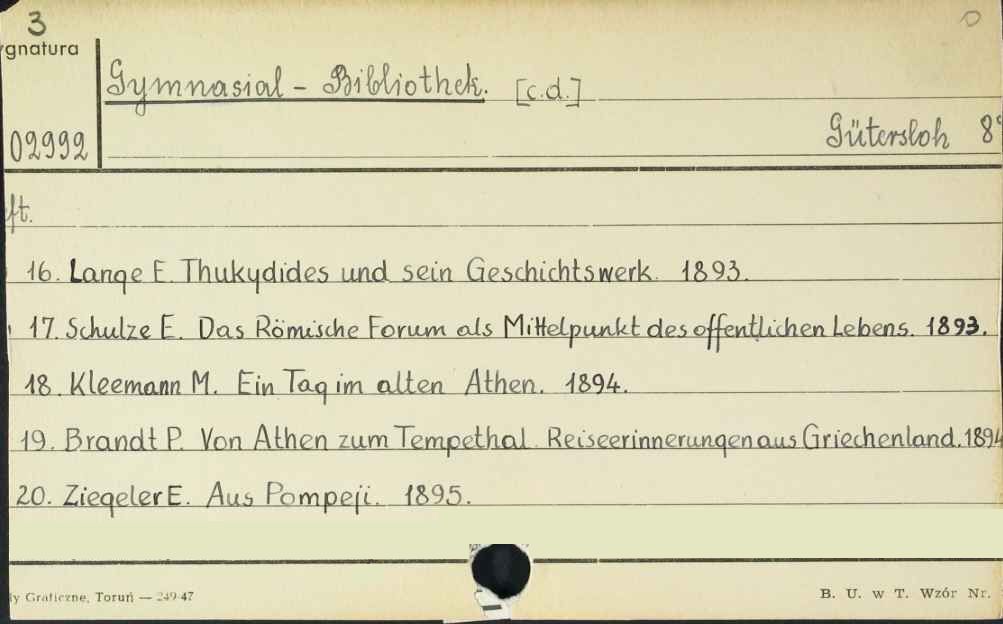 3
ygnatura
Gymnasial - Bibliothek. [c.d.]
02992
Gütersloh 8°
ft.
16. Lange E. Thukydides und sein Geschichtswerk. 1893.
17. Schulze E. Das Römische Forum als Mittelpunkt des offentlichen Lebens. 1893.
18. Kleemann M. Ein Tag im alten Athen. 1894.
19. Brandt P. Von Athen zum Tempethal. Reiseerinnerungen aus Griechenland. 1894
20. Ziegeler E. Aus Pompeji. 1895.
ly Graficzne, Toruń — 249-47
B. U. w T. Wzór Nr.